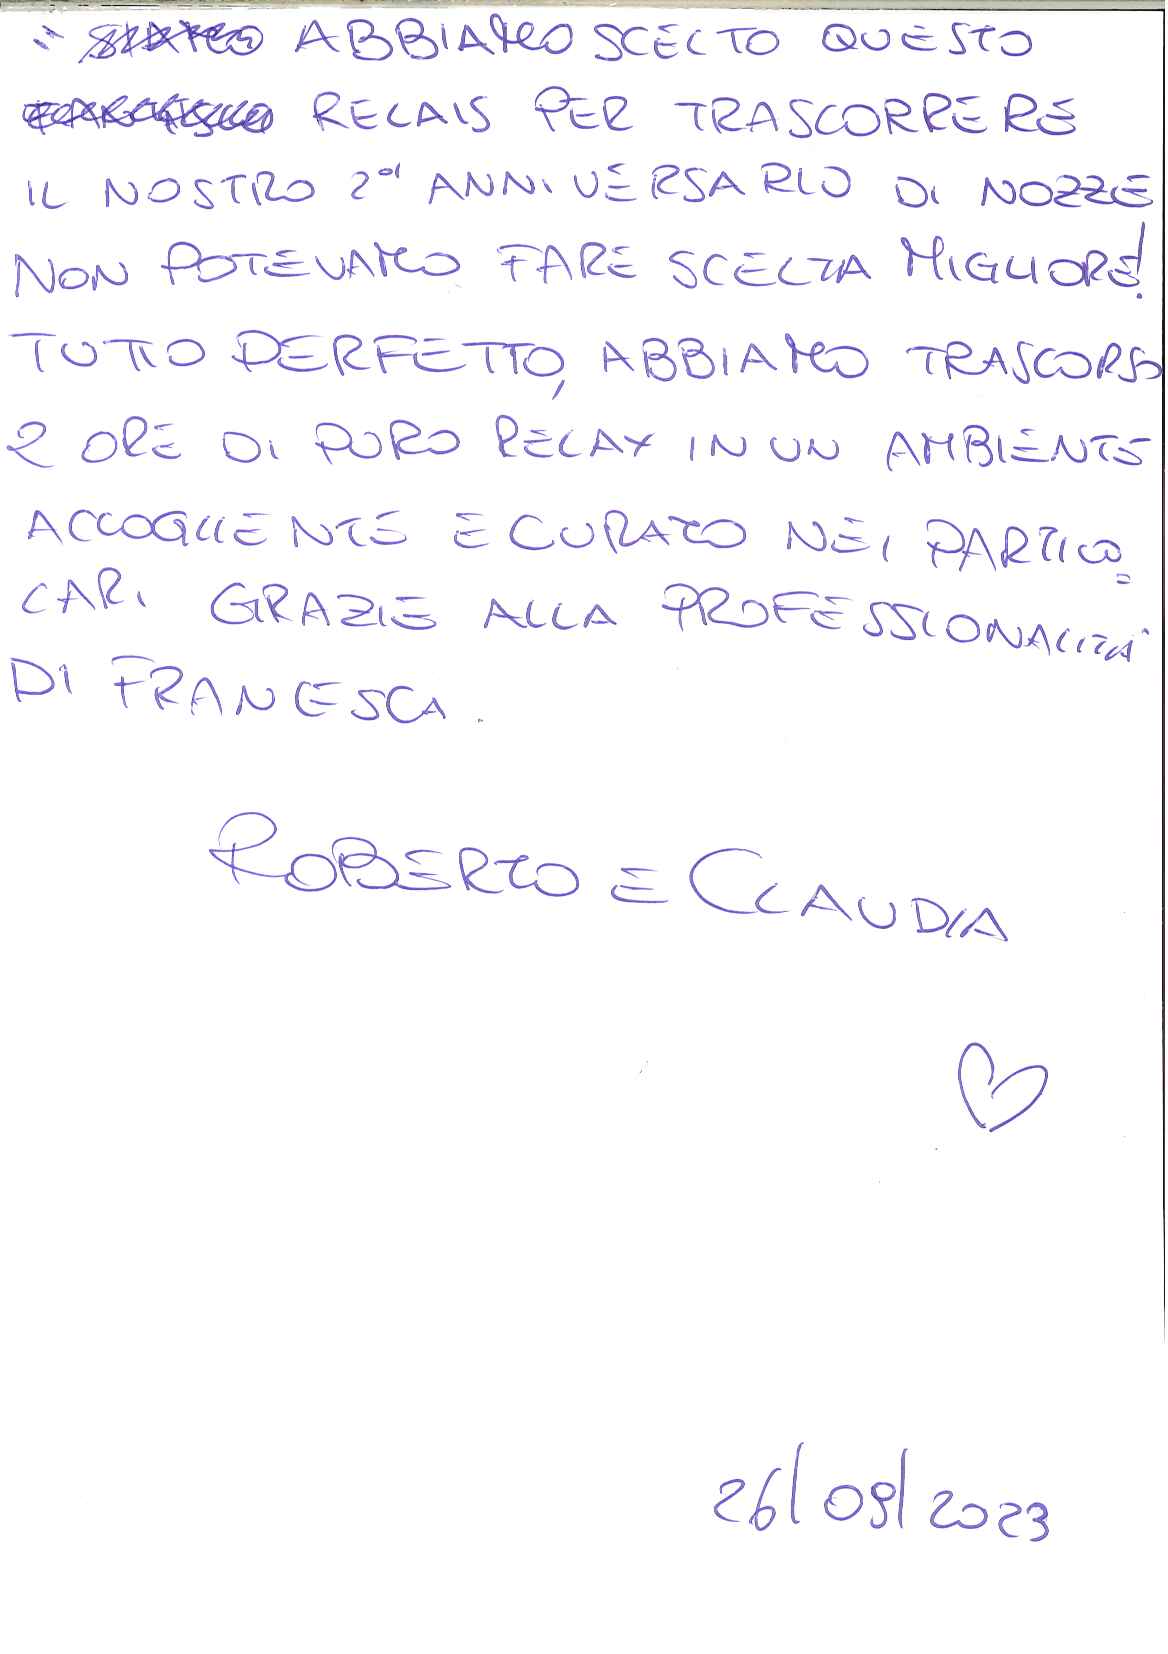 ABBIAMO SCELTO QUESTO
RELAIS PER TRASCORRERE
IL NOSTRO 2° ANNIVERSARIO DI NOZZE
NON POTEVAMO FARE SCELTA MIGLIORE!
TUTTO PERFETTO, ABBIAMO TRASCORSO
2 ORE DI PURO RELAX IN UN AMBIENTE
ACCOGLIENTE E CURATO NEI PARTICO=
LARI GRAZIE ALLA PROFESSIONALITÀ
DI FRANCESCA.
ROBERTO E CLAUDIA
26/09/2023